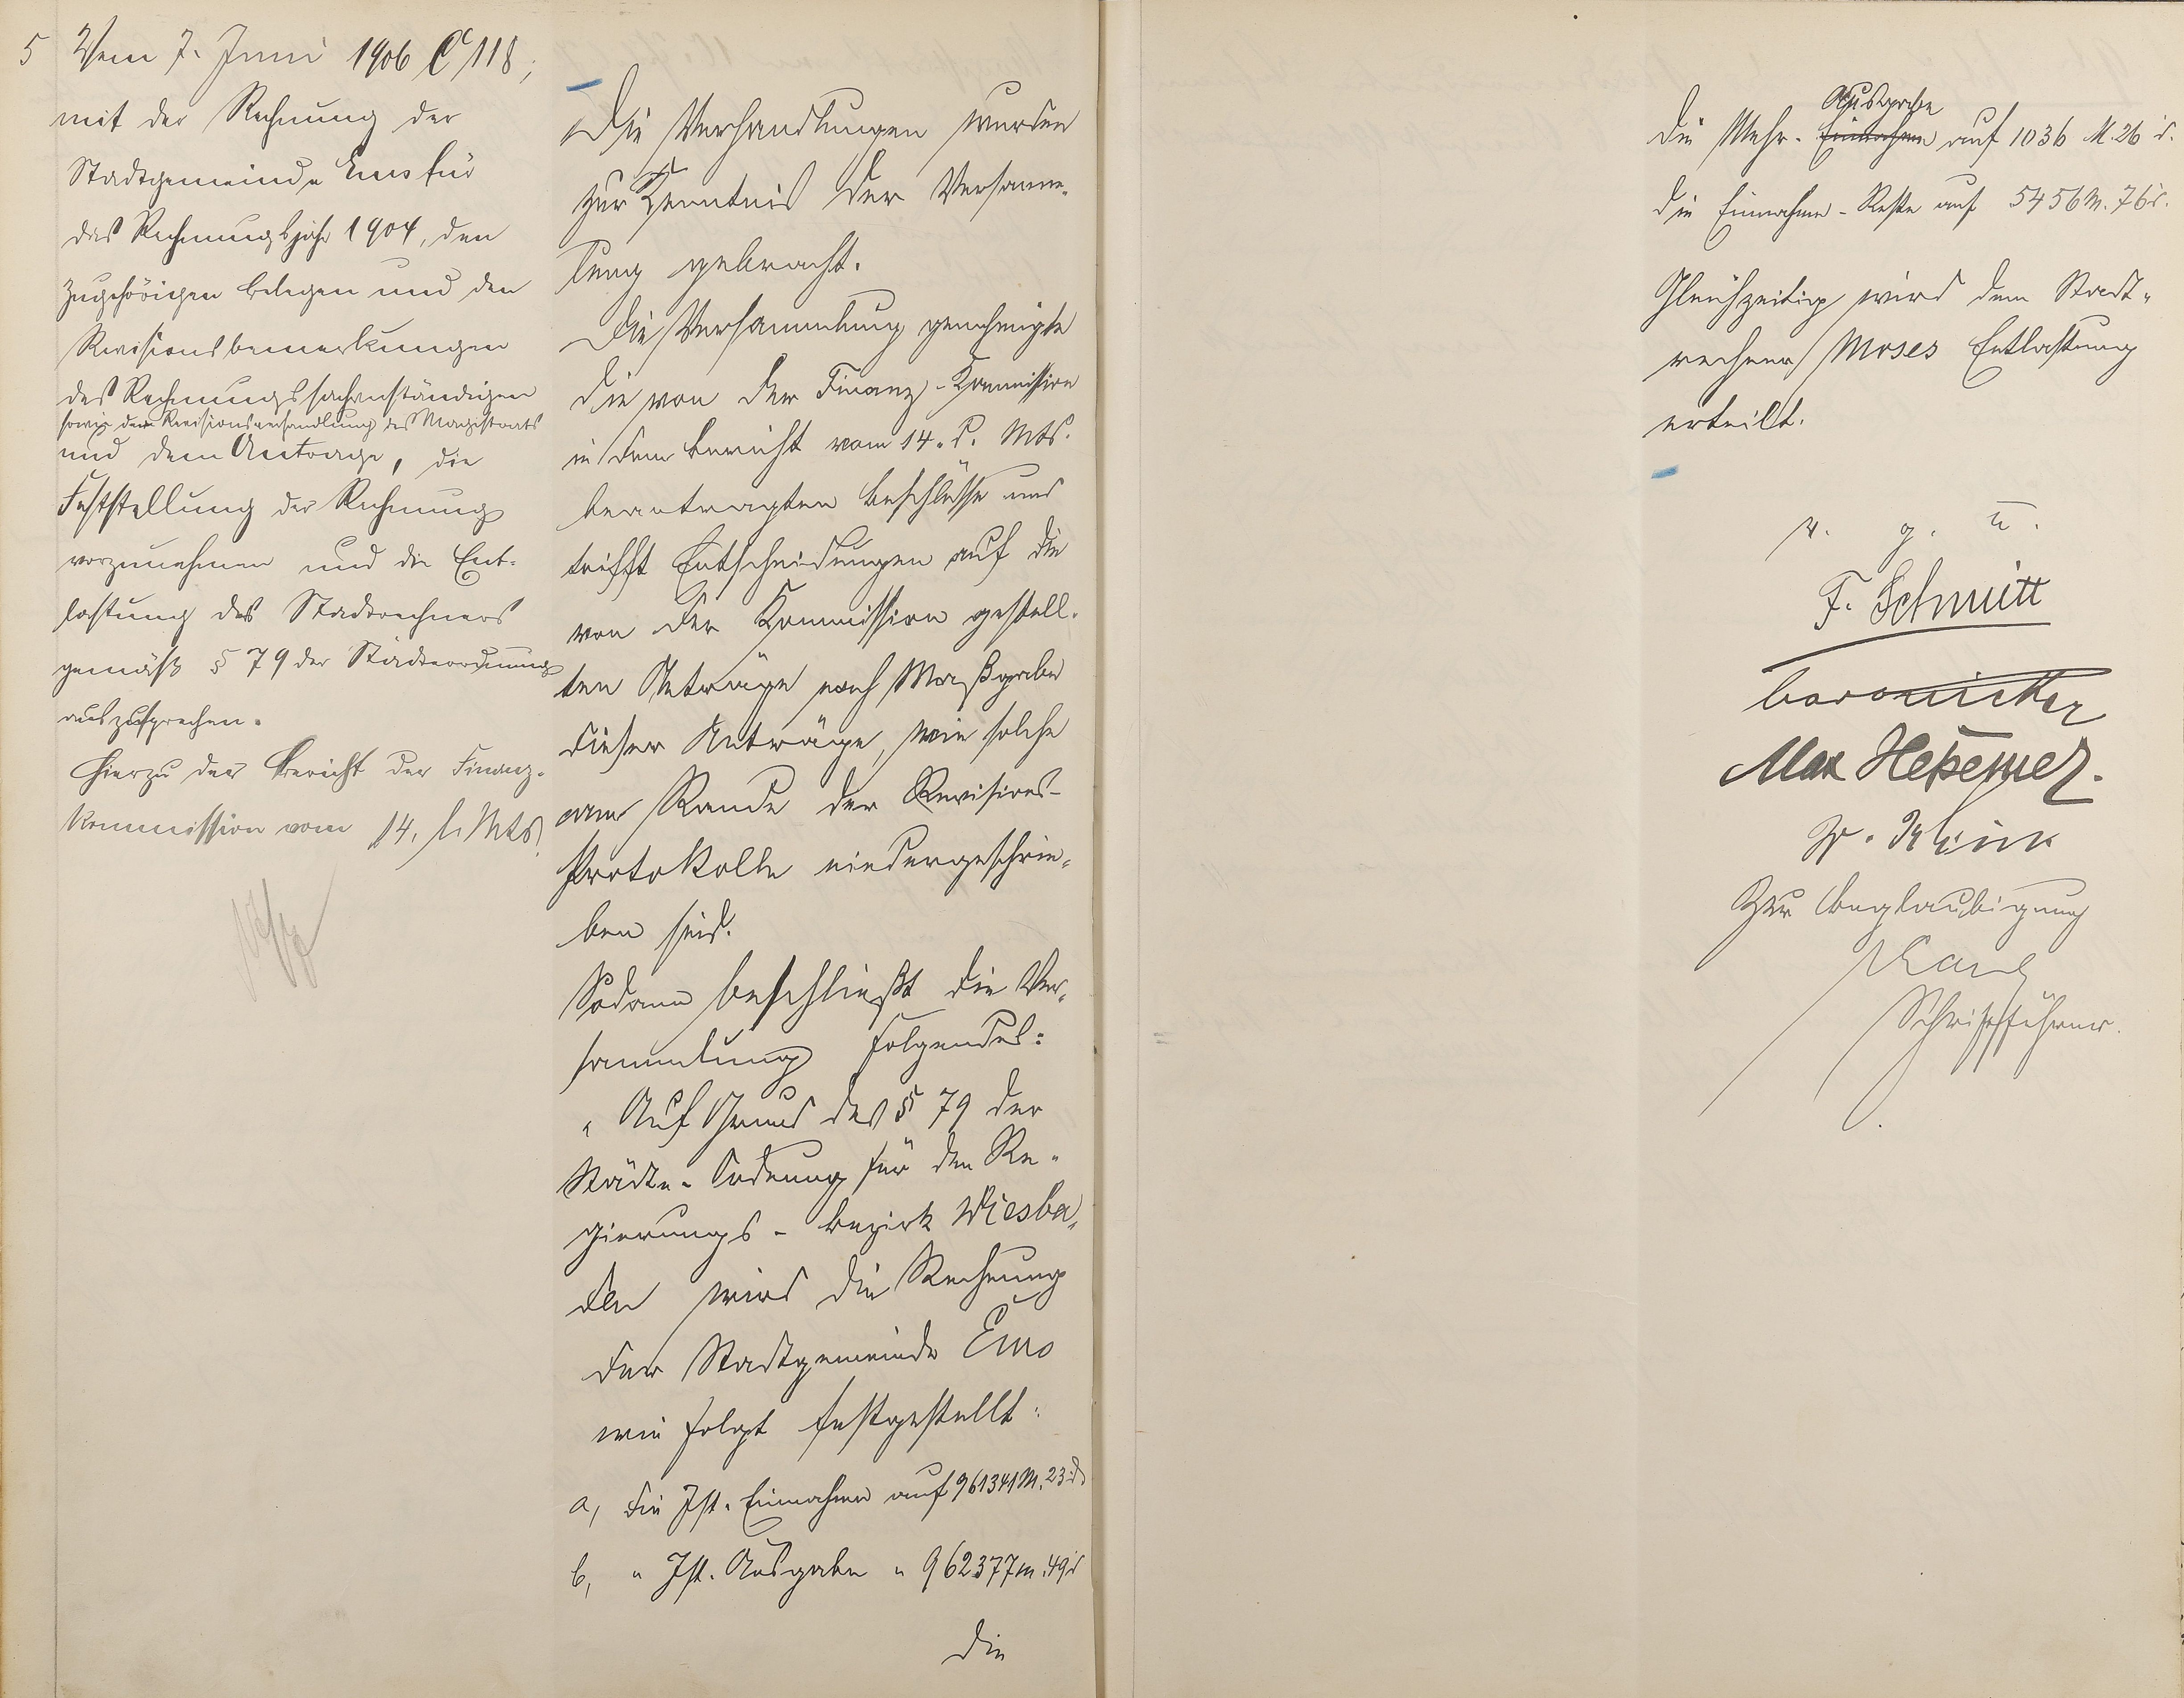 5 Vom 7. Juni 1906 C 118;
mit der Rechnung der
Stadtgemeinde Ems für
das Rechnungsjahr 1904, den
zugehörigen Belegen und den
Revisionsbemerkungen
des Rechnungssachverständigen
sowie der Revisionsverhandlung des Magistrats
und dem Antrage, die
Feststellung der Rechnung
vorzunehmen und die Ent-
lastung des Stadtrechners
gemäß § 79 der Städteordnung
auszusprechen.
Hierzu der Bericht der Finanz-
kommission vom 14. l. Mts.
Die Verhandlungen wurden
zur Kenntnis der Versamm-
lung gebracht.
Die Versammlung genehmigte
die von der Finanz-Kommission
in dem Bericht vom 14. d. Mts.
beantragten Beschlüsse und
trifft Entscheidungen auf die
von der Kommission gestell-
ten Anträge nach Maßgabe
dieser Anträge, wie solche
am Rande der Revisions-
Protokolle niedergeschrie-
ben sind.
Sodann beschließt die Ver-
sammlung folgendes:
"Auf Grund des § 79 der
Städte-Ordnung für den Re-
gierungs-bezirk Wiesba-
den wird die Rechnung
der Stadtgemeinde Ems
wie folgt festgestellt:
a, die Ist-Einnahme auf 961341 M. 23 d.
b, " Ist-Ausgabe " 962377 M. 49 d
die
Ausgabe
die Mehr-Einnahme auf 1036 M. 26 d.
die Einnahme-Reste auf 5456 M. 76 d.
Gleichzeitig wird dem Stadt-
rechner Moses Entlastung
erteilt.
v. g. u.
F. Schmitt
Max
Zur Beglaubigung
Schriftführer.